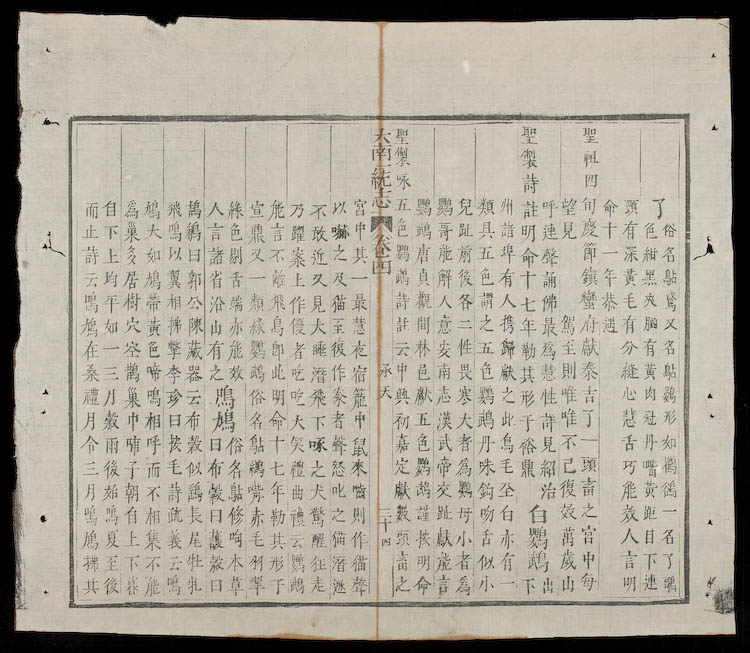 了 俗名鴣鶖又名鴣鷄形如鸜鵒一名了
色紺黑夾腦有黃肉冠丹嘴黃距目下連
頭有深黃毛有分縫心慧舌巧能效人言明
命十一年恭遇
聖祖四旬慶節鎮蠻府獻秦吉了一頭畜之宮中每
望見 駕至則唯唯不已復效萬歲山
呼連聲誦佛最為慧性詳見紹治
聖製詩 註明命十七年勒其形于裕鼎 白鸚鵡 出下
州諳埠有人携歸獻之此鳥毛全白亦有一
類具五色謂之五色鸚鵡丹咮鈎吻舌似小
兒趾前後各二性畏寒大者為鸚母小者為
鸚哥能解人意安南志漢武帝交趾獻能言
鸚鵡唐貞觀間林邑獻五色鸚鵡謹按明命
聖製咏五色鸚鵡詩註云中興初嘉定獻數頭畜之
大南一統志 卷四 承天 二十四
宮中其一最慧夜宿籠中鼠來嚙則作猫聲
以嚇之及猫至復作秦者聲怒叱之猫潛遯
不敢近又見犬睡潛飛下啄之犬驚醒狂走
乃躍案上作優者吃吃大笑禮曲禮云鸚鵡
能言不離飛鳥卽此明命十七年勒其形于
宣鼎又一類綠鸚鵡俗名鴣鸏嘴赤毛羽翠
綠色剔舌端亦能效
人言諸省沿山有之 鳲鳩 俗名鴣修㖼本草曰布穀曰護穀曰
鴶鵴曰郭公陳藏器云布穀似鷂長尾牡牝
飛鳴以翼相拂擊李珍曰按毛詩疏義云鳴
鳩大如鳩帶黃色啼鳴相呼而不相集不能
為巢多居樹穴空鵲巢中啼子朝自上下暮
自下上均平如一三月穀雨後始鳴夏至後
而止詩云鳲鳩在桑禮月令三月鳴鳩拂其